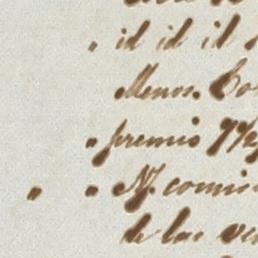 " id id id
Menos. Co
" premio 7 1/2
" " N. comis
de las ve